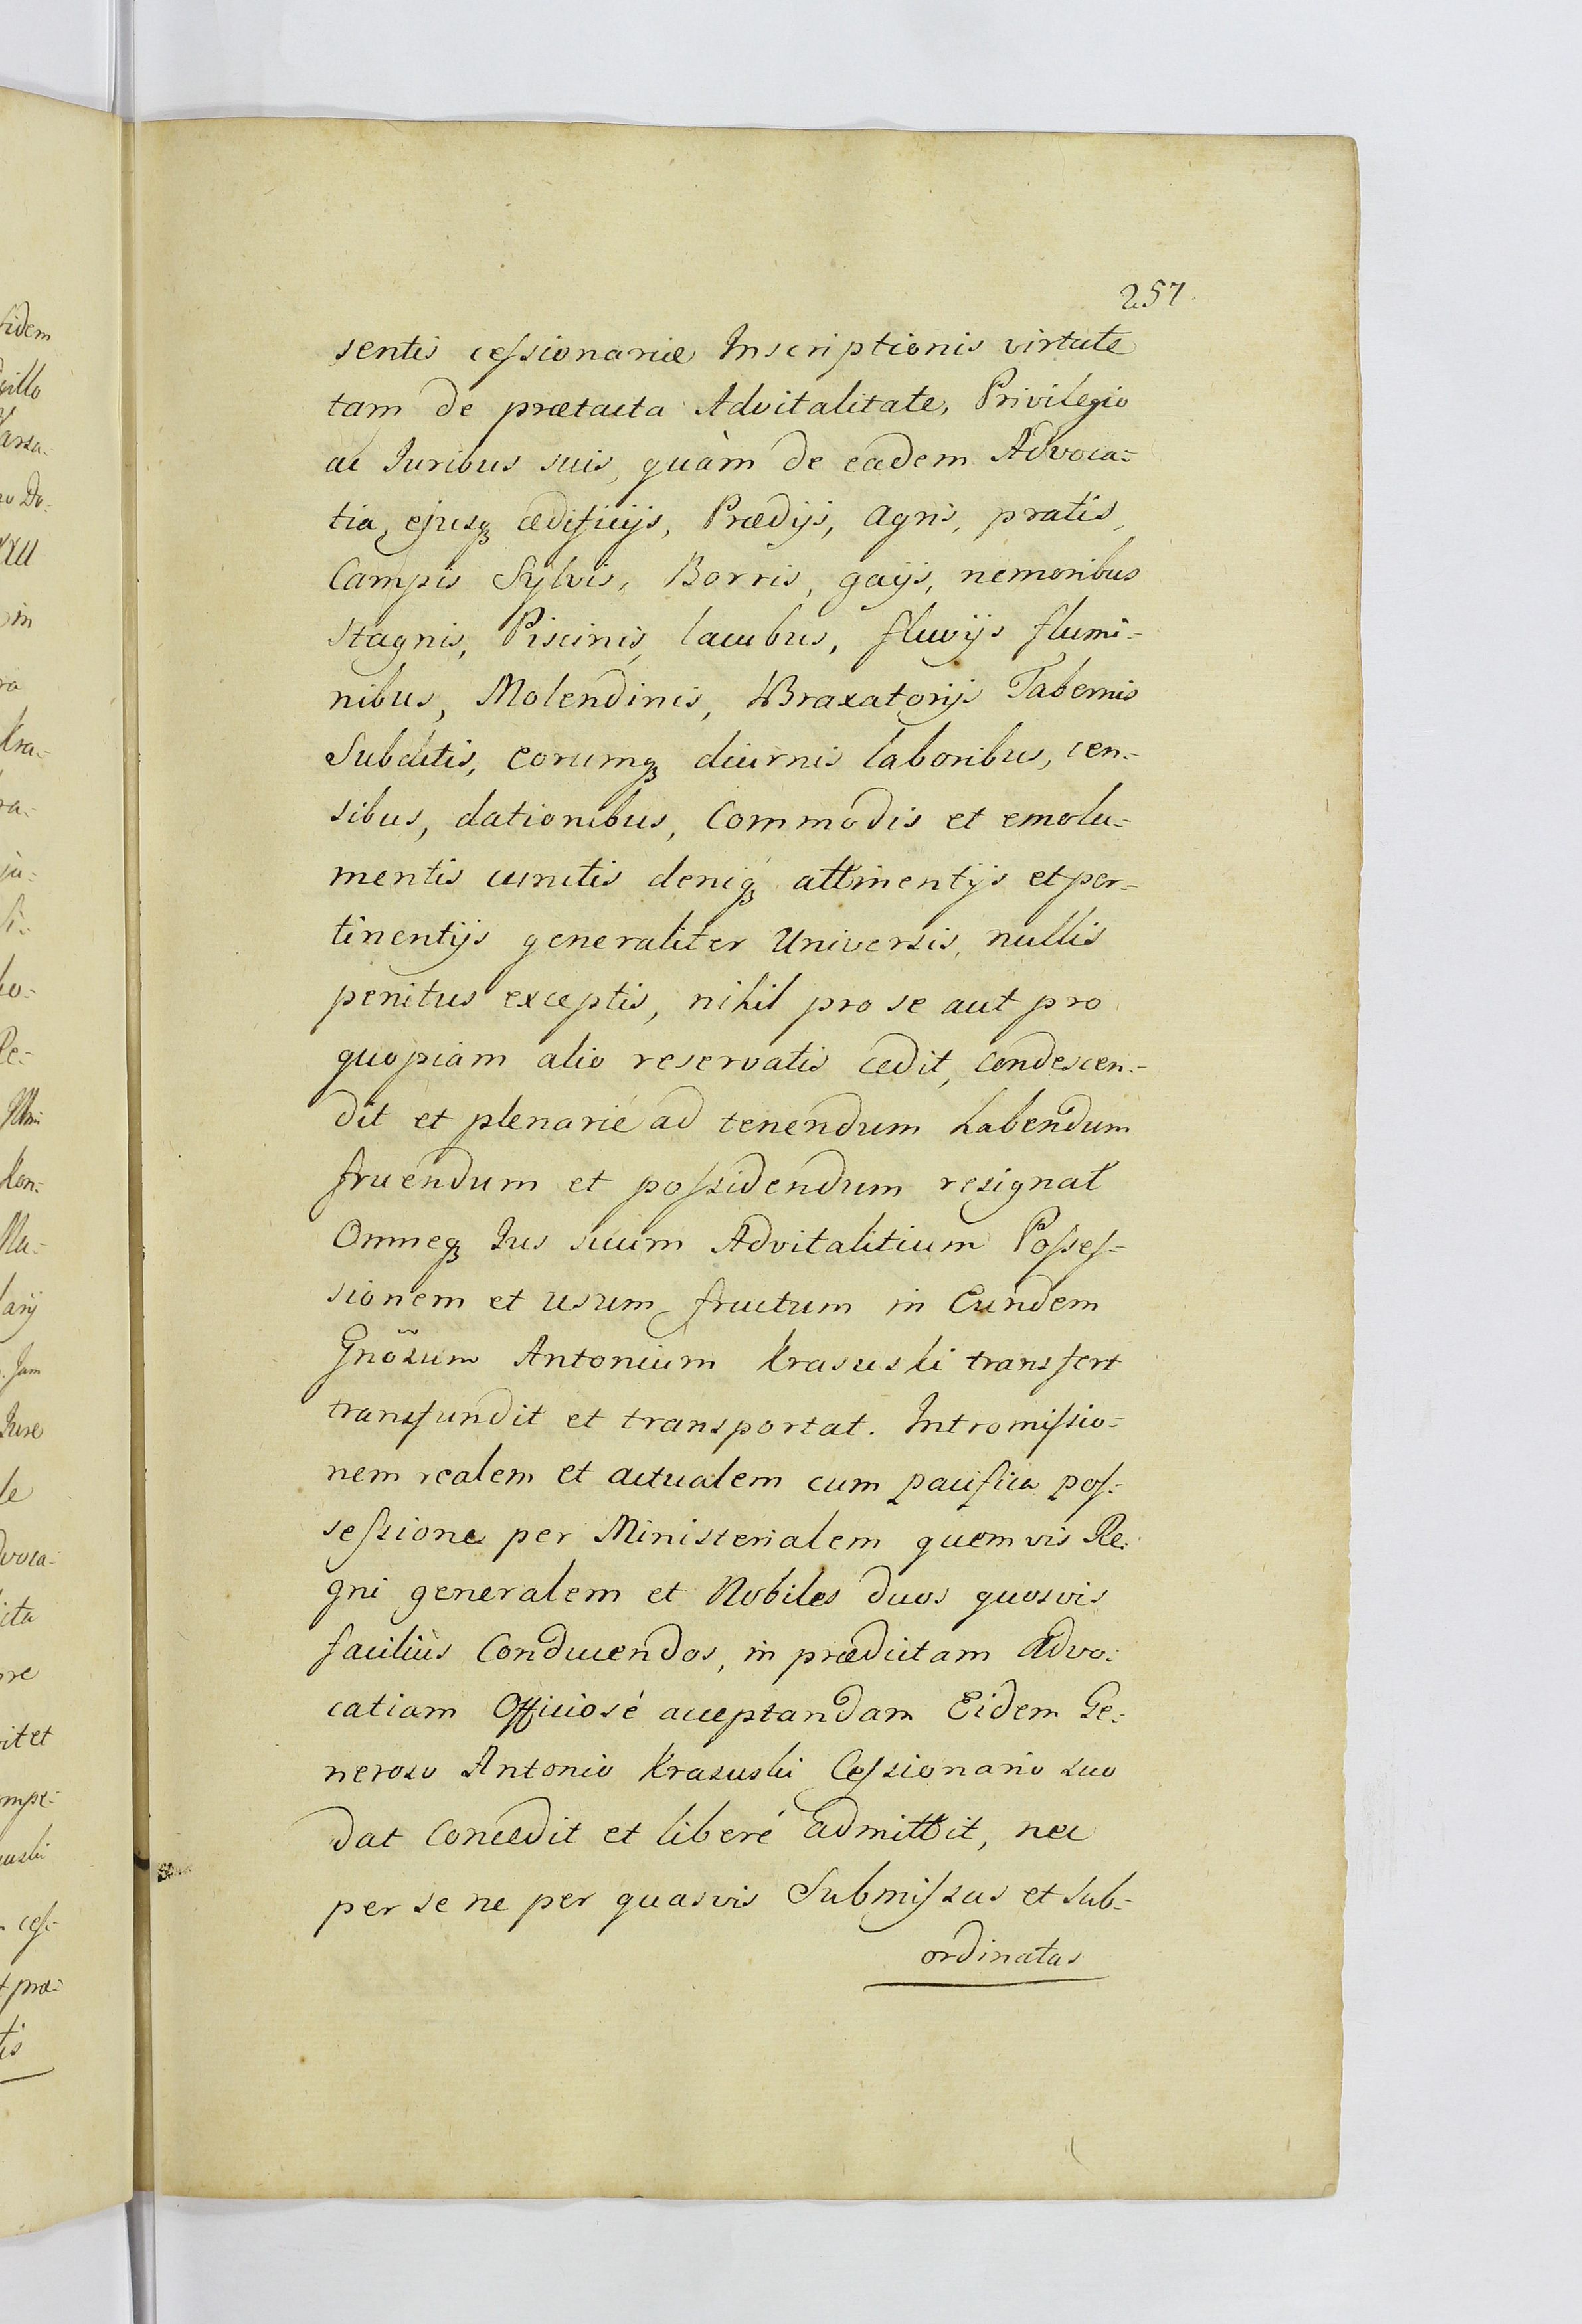 257.
sentis cessionariæ Inscriptionis virtute
tam de prætacta Advitalitate, Privilegio
ac Juribus suis, quàm de eadem Advoca=
tia, ejusq₃ ædificijs, Prædijs, Agris, pratis,
Campis Sylvis, Borris, gajs, nemoribus
Stagnis, Piscinis, lacubus, fluvijs flumi=
nibus, Molendinis, Braxatorijs Tabernis
Subditis, eorumq₃ diurnis laboribus, cen=
sibus, dationibus, Commodis et emolu=
mentis cunctis deniq₃ attinentijs et per=
tinentijs generaliter Universis, nullis
penitus exceptis, nihil pro se aut pro
quopiam alio reservatis cedit, condescen=
dit et plenarié ad tenendum habendum
fruendum et possidendum resignat
Omneq₃ Jus suum Advitalitium Posses=
sionem et usum fructum in Eundem
Gnõsum Antonium Krasuski transfert
transfundit et transportat. Intromissio=
nem realem et actualem cum pacifica pos=
sessione per Ministerialem quemvis Re:
gni generalem et Nobiles duos quosvis
faciliùs Conducendos, in prædictam Advo:
catiam Officiosé acceptandam Eidem Ge:
neroso Antonio Krasuski Cessionario suo
dat Concedit et liberé admittit, nec
per se ne per quasvis Submissas et sub=
ordinatas
fidem
in
ra
Kra=
ra=
ja=
ho=
Re=
Kon:
arij
Jam
Jure
le
dvoca=
icta
re
it et
uski
cess=
t præ=
tis